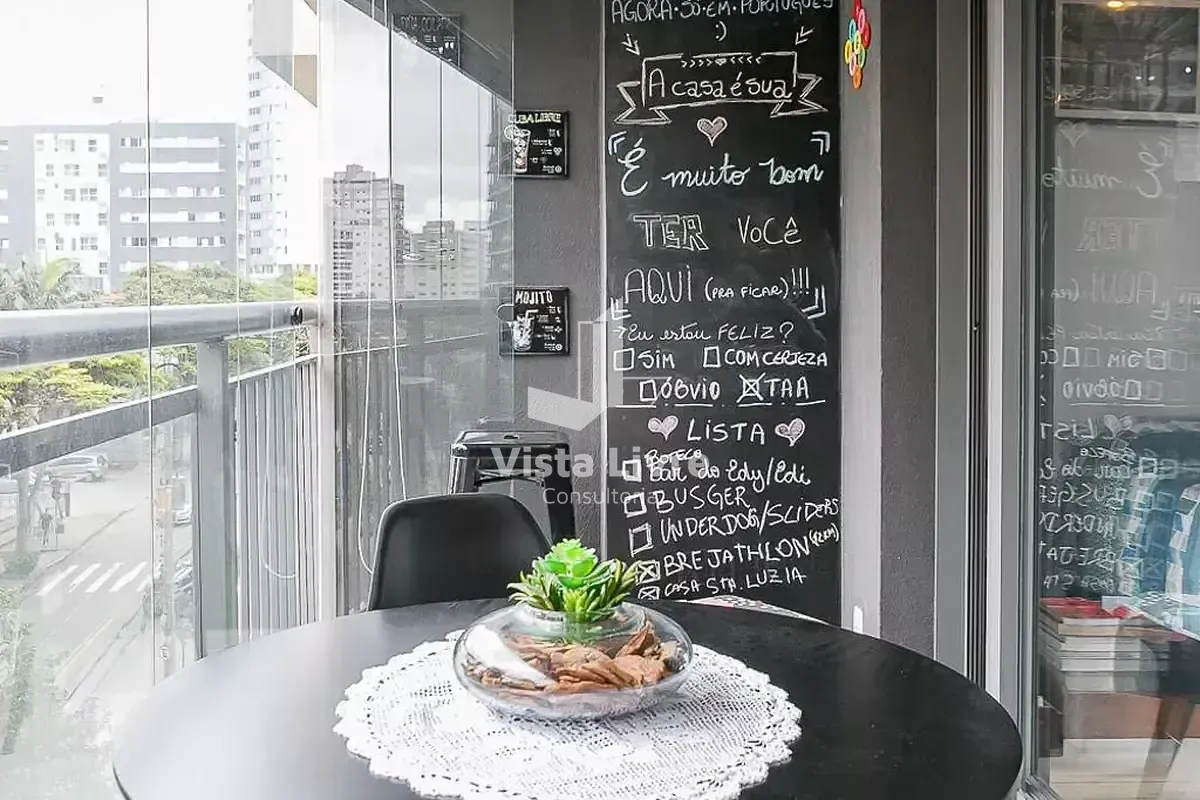 AGORA·SÓ·EM·PORTUGUÊS
:)
A casa é sua!
É muito bom
TER VOCÊ
AQUI (PRA FICAR)!!!
→Eu estou FELIZ?
SIM COM CERJEZA
ÓBVIO TAA
LISTA
BOTECO
Bar do Edy/Edi
BUSGER
UNDERDOG/SLIDERS
BREJATHLON (42KM)
CASA STA. LUZIA
CUBA LIBRE
MOJITO
Vista Livre
Consultoria